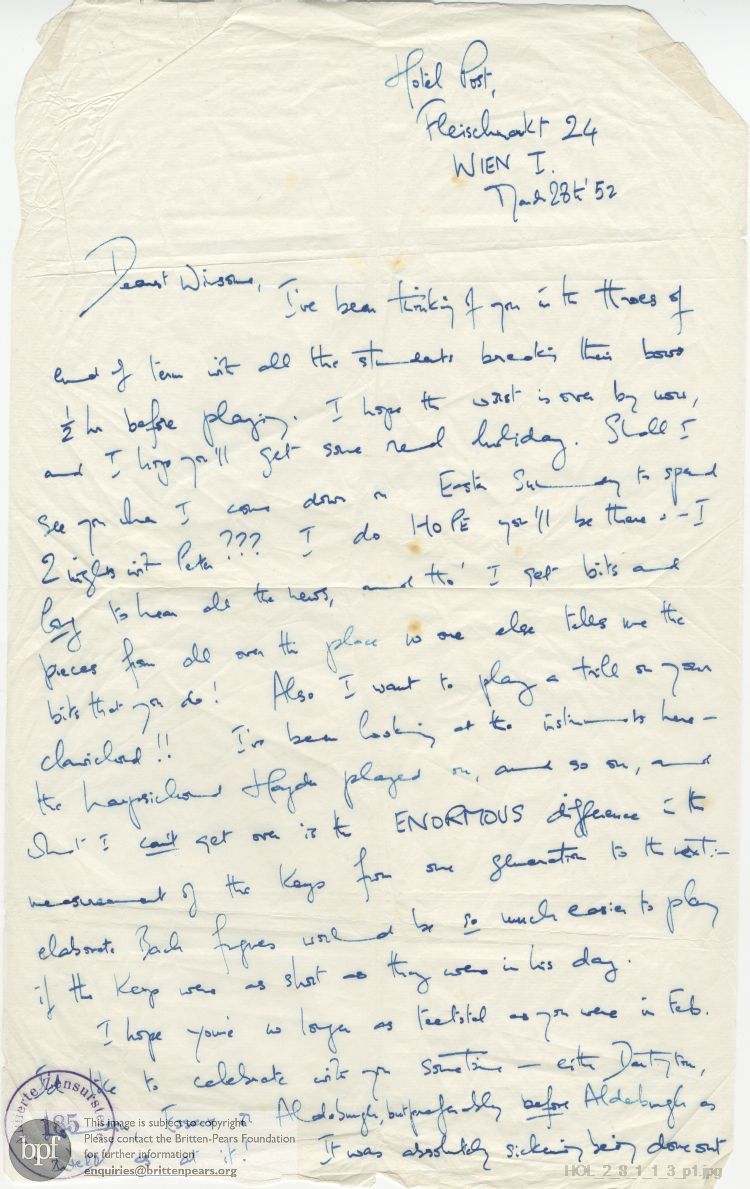 Hotel Post,
Fleischmarkt 24
WIEN I.
March 28th '52
Dearest Winsome,
I've been thinking of you in the throes of
end of term with all the students breaking their bows
½ hr before playing. I hope the worst is over by now,
and I hope you'll get some real holiday. Shall I
see you when I come down on Easter Sunday to spend
2 nights with Peter??? I do HOPE you'll be there -- I
long to hear all the news, and tho' I get bits and
pieces from all over the place no one else tells me the
bits that you do! Also I want to play a trill on your
clavichord!! I've been looking at the instruments here –
the harpsichord Haydn played on, and so on, and
what I can't get over is the ENORMOUS difference in the
measurement of the keys from one generation to the next:–
elaborate Bach fugues would be so much easier to play
if the keys were as short as they were in his day.
I hope you're no longer as teetotal as you were in Feb.
I'd like to celebrate with you sometime – either Dartington,
Aldeburgh, but preferably before Aldeburgh as
well as at it! It was absolutely sickening being done out
Zensurstelle
185
bpf
This image is subject to copyright.
Please contact the Britten-Pears Foundation
for further information
enquiries@brittenpears.org
HOL_2_8_1_1_3_p1.jpg